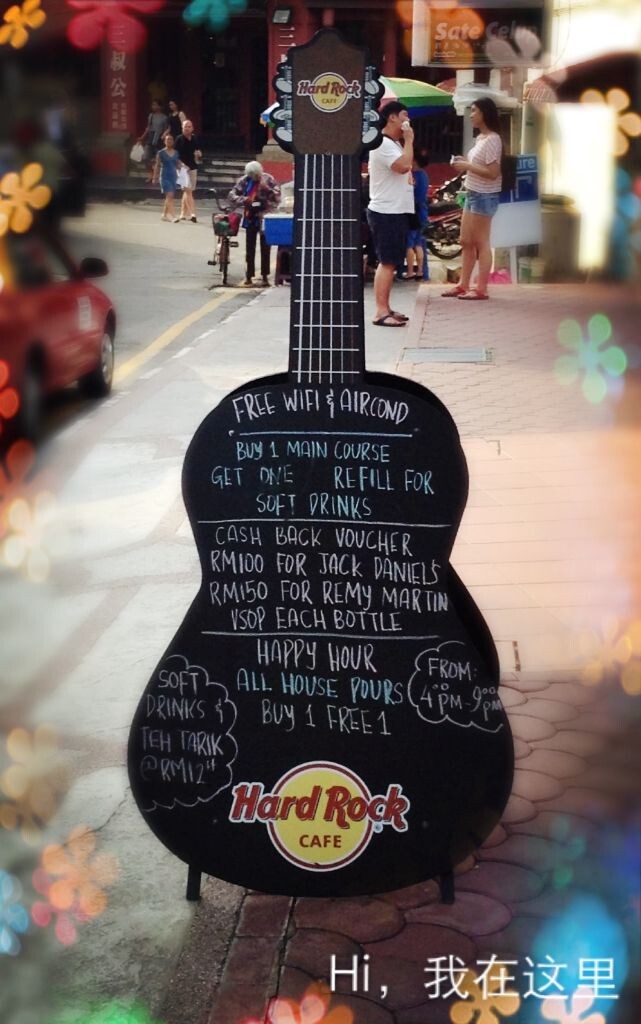 三叔公
Sate Celup
Hard Rock
CAFE
FREE WIFI & AIRCOND
BUY 1 MAIN COURSE
GET ONE REFILL FOR
SOFT DRINKS
CASH BACK VOUCHER
RM100 FOR JACK DANIELS
RM150 FOR REMY MARTIN
VSOP EACH BOTTLE
HAPPY HOUR
ALL HOUSE POURS
BUY 1 FREE 1
SOFT
DRINKS &
TEH TARIK
@RM12++
FROM:
4:00 PM-9:00 PM
Hard Rock
CAFE
Hi，我在这里